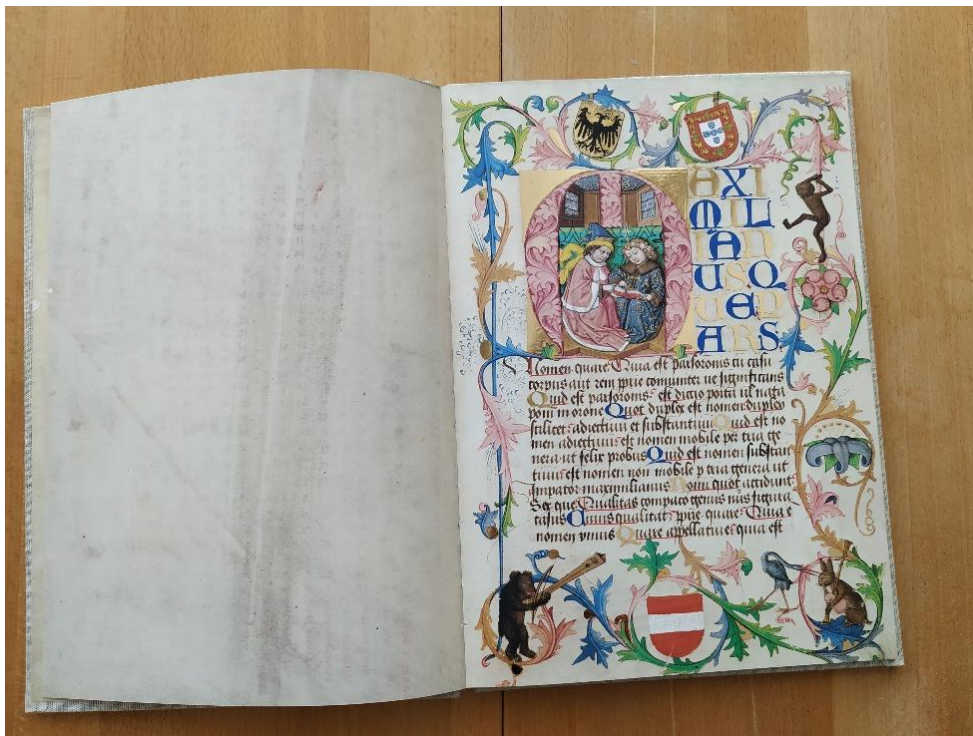 M
AXI
MIL
IAN
USQ
UEP
ARS
Nomen quare Quia est pars oronis cū casu
corpus aut rem pprie comuniter ue significans
Quid est pars oronis est dictio posita ul nata
poni in orone Quot duplex est nomen duplex
scilicet adiectiuū et substantiuū Quid est no
men adiectiuū est nomen mobile per tria ge
nera ut felix probus Quid est nomen substan
tiuū est nomen non mobile p tria genera ut
Impator maximilianus quot accidunt
Sex que Qualitas compaco genus nūs figura
casus Cuius qualitat pprie quare Quia ē
nomen vnius Quare appellatiue quia est